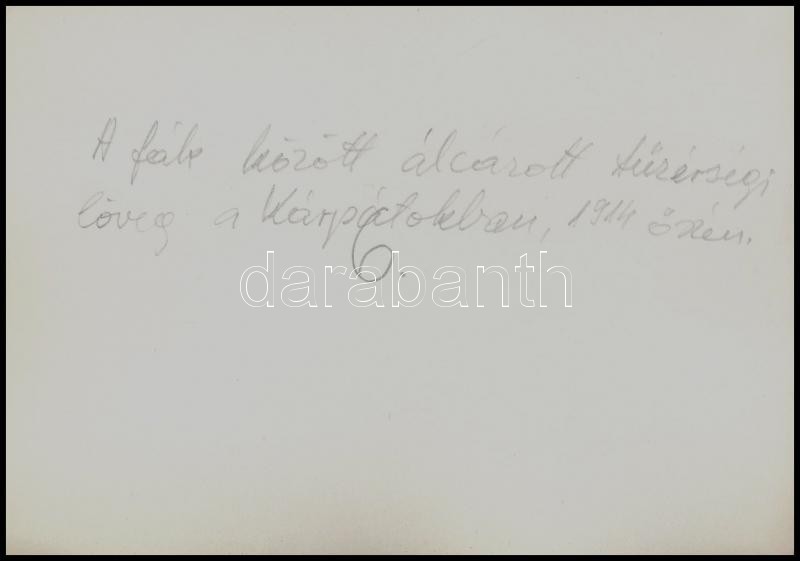 A fák között álcázott tüzérségi
löveg a Kárpátokban, 1914 őszén.
6.
darabanth